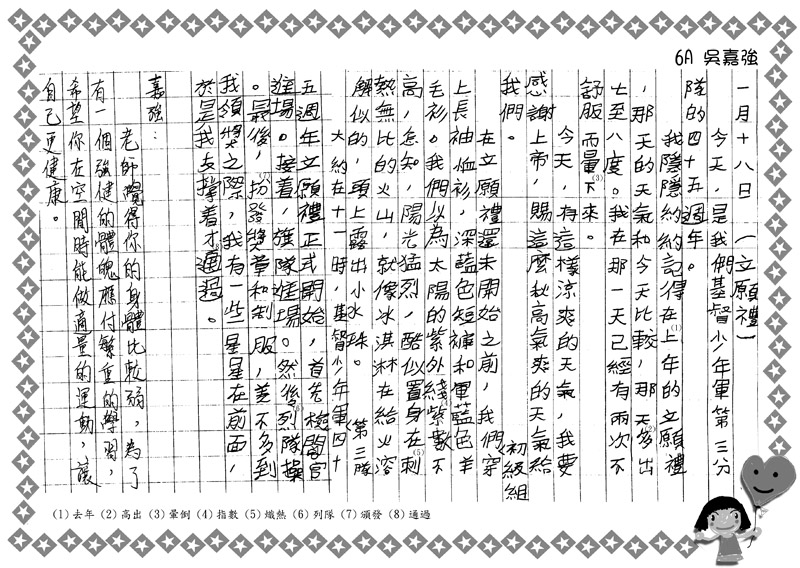 6A 吳嘉強
一月十八日 (立願禮)
今天,是我們基督少年軍第三分
隊的四十五週年。
我隱隱約約記得在上年的立願禮(1)
,那天的天氣和今天比較,那天多出(2)
七至八度。我在那一天已經有兩次不
舒服而暈下來。(3)
今天,有這樣涼爽的天氣,我要
感謝上帝,賜這麼秋高氣爽的天氣給
我們。
在立願禮還未開始之前,我們穿《初級組
上長袖恤衫,深藍色短褲和軍藍色羊
毛衫。我們以為太陽的紫外綫紫數不(4)
高,怎知,陽光猛烈,酷似置身在刺(5)
熱無比的火山,就像冰淇淋在給火溶
解似的,頭上露出小水珠。《第三隊
大約在十一時,基督少年軍四十
五週年立願禮正式開始,首先檢閱官
進場。接着,旗隊進場。然後列隊操(6)
。最後,扮發獎章和制服,差不多到(7)
我領獎之際,我有一些星星在前面,
於是我支撐着才通過。(8)
嘉強:
老師覺得你的身體比較弱,為了
有一個強健的體魄應付繁重的學習,
希望你在空閒時能做適量的運動,讓
自己更健康。
(1)去年 (2)高出 (3)暈倒 (4)指數 (5)熾熱 (6)列隊 (7)頒發 (8)通過